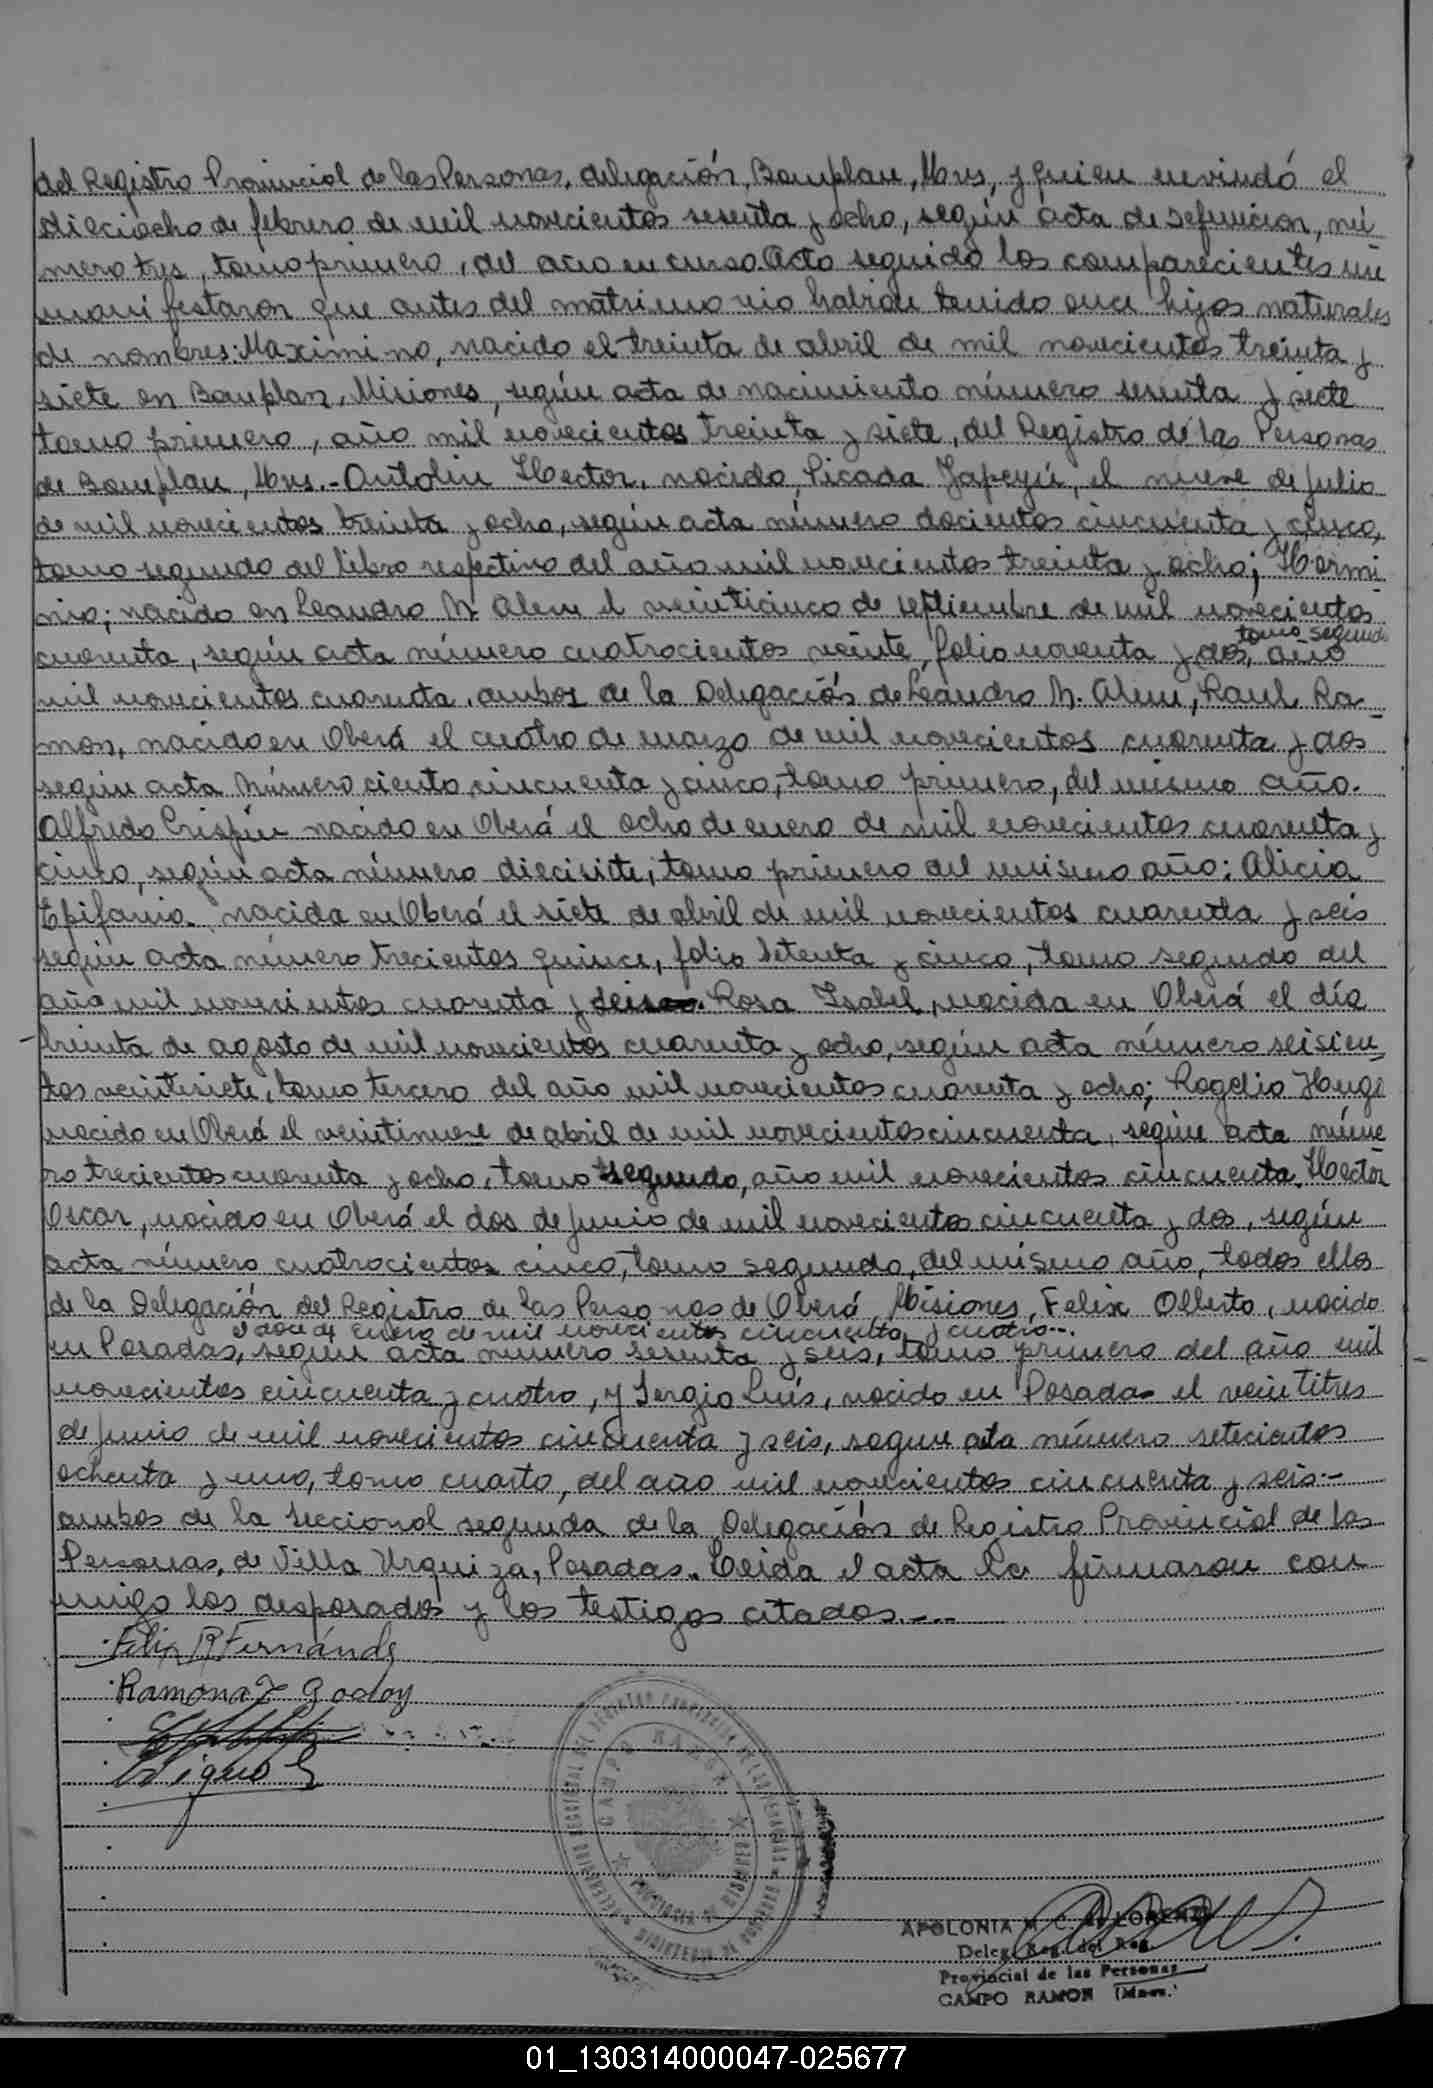 del Registro Provincial de las Personas, delegación, Bomplan, Mnes, y quien enviudó el
dieciocho de febrero de mil novecientos sesenta y ocho, según acta de defuncion, nú
mero tres, tomo primero, del año en curso. Acto seguido los comparecientes me
manifestaron que antes del matrimonio habian tenido once hijos naturales
de nombres: Maximino, nacido el treinta de abril de mil novecientos treinta y
siete en Bomplan, Misiones, según acta de nacimiento número sesenta y siete
tomo primero, año mil novecientos treinta y siete, del Registro de las Personas
de Bomplan, Mns.- Antolin Hector, nacido, Picada Yapeyú, el nueve de julio
de mil novecientos treinta y ocho, según acta número docientos cincuenta y cinco,
tomo segundo del libro respectivo del año mil novecientos treinta y ocho; Hermi
nio; nacido en Leandro N. Alem el veinticinco de septiembre de mil novecientos
tomo segundo
cuarenta, según acta número cuatrocientos veinte, folio noventa y dos, año
mil novecientos cuarenta, ambos de la Delegación de Leandro N. Alem, Raul Ra-
mon, nacido en Oberá el cuatro de marzo de mil novecientos cuarenta y dos
según acta número ciento cincuenta y cinco, tomo primero, del mismo año.
Alfredo Crispin nacido en Oberá el ocho de enero de mil novecientos cuarenta y
cinco, según acta número diecisiete, tomo primero del mismo año: Alicia
Epifania. nacida en Oberá el siete de abril de mil novecientos cuarenta y seis
según acta número trecientos quince, folio setenta y cinco, tomo segundo del
año mil novecientos cuarenta y seis. Rosa Isabel, nacida en Oberá el día
treinta de agosto de mil novecientos cuarenta y ocho, según acta número seiscien_
tos veintisiete, tomo tercero del año mil novecientos cuarenta y ocho; Rogelio Hugo
nacido en Oberá el veintinueve de abril de mil novecientos cincuenta, según acta núme
ro trecientos cuarenta y ocho, tomo segundo, año mil novecientos cincuenta. Hector
Oscar, nacido en Oberá el dos de junio de mil novecientos cincuenta y dos, según
acta número cuatrocientos cinco, tomo segundo, del mismo año, todos ellos
de la Delegación del Registro de las Personas de Oberá, Misiones, Felix Olberto, nacido
el doce de enero de mil novecientos cincuenta y cuatro...
en Posadas, según acta número sesenta y seis, tomo primero del año mil
novecientos cincuenta y cuatro, y Sergio Luis, nacido en Posadas el veintitres
de junio de mil novecientos cincuenta y seis, segun acta número setecientos
ochenta y uno, tomo cuarto, del año mil novecientos cincuenta y seis.-
ambos de la seccional segunda de la Delegación de Registro Provincial de las
Personas, de Villa Urquiza, Posadas. Leida el acta la firmaron con
migo los desposados y los testigos citados.---
Felix R Fernánde
Ramona Z Godoy
CAMPO RAMON
PROVINCIA DE MISIONES
APOLONIA M. C. de LORENZ
Deleg. Reg. del Reg.
Provincial de las Personas
CAMPO RAMON (Mnes.
01_130314000047-025677